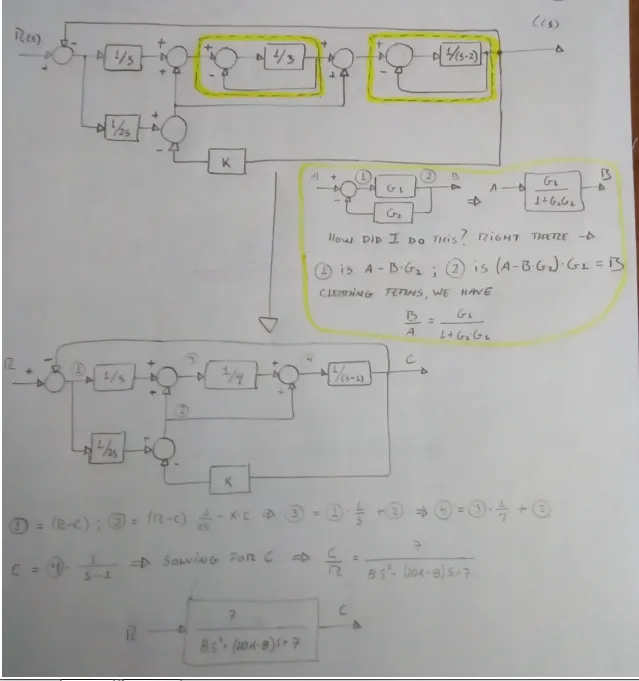 R(s) + - 1/s + + + - 1/3 + + + - 1/(s-2) C(s)
1/2s + -
K
A + - ① G1 ② B ⇒ A G1/(1+G2G1) B
G2
HOW DID I DO THIS? RIGHT THERE →
① is A - B·G2 ; ② is (A-B·G2)·G1 = B
CLEARING TERMS, WE HAVE
B/A = G1/(1+G2G1)
R + - ① 1/s + + ③ 1/4 + ④ 1/(s-1) C
②
1/2s -
K
① = (R-C) ; ② = (R-C) 1/2s - K·C ⇒ ③ = ①·1/s + ② ⇒ ④ = ③·1/4 + ②
C = ④· 1/s-1 ⇒ SOLVING FOR C ⇒ C/R = 7/8s²+(10K-8)s+7
R 7/8s²+(10K-8)s+7 C